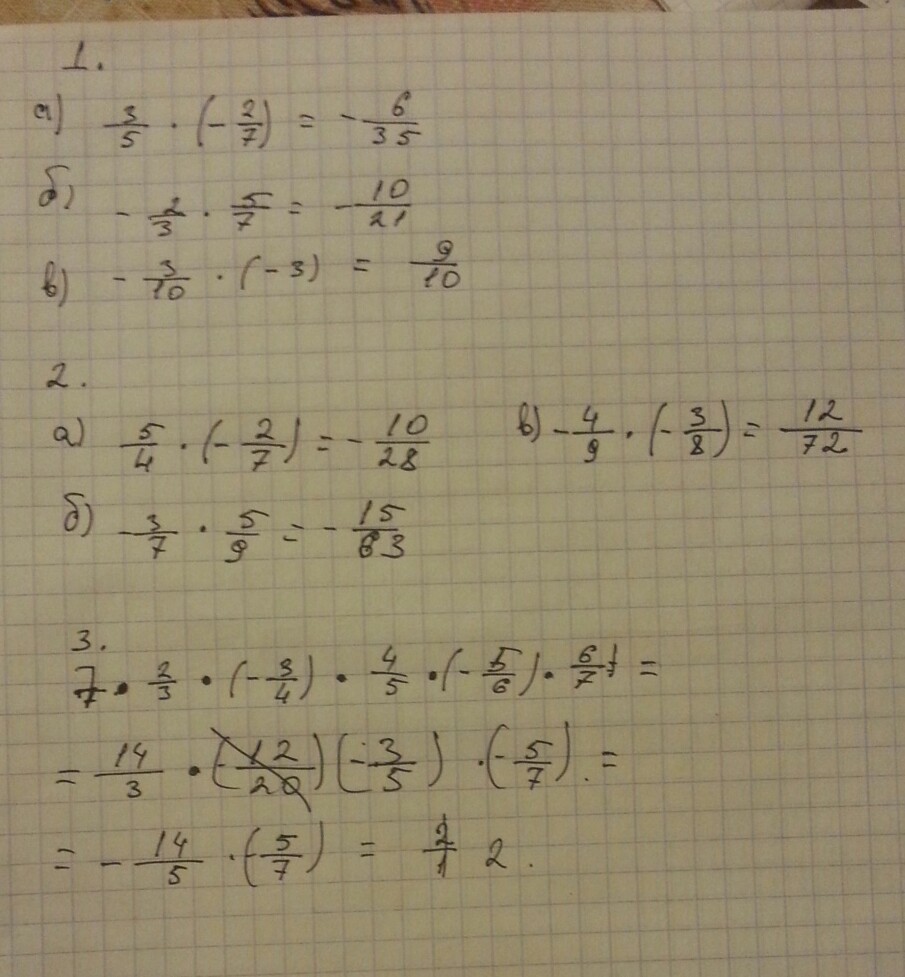 1.
а) 3/5 · (-2/7) = -6/35
б) -2/3 · 5/7 = -10/21
в) -3/10 · (-3) = 9/10
2.
а) 5/4 · (-2/7) = -10/28
в) -4/9 · (-3/8) = 12/72
б) -3/7 · 5/9 = -15/63
3.
7 · 2/3 · (-3/4) · 4/5 · (-5/6) · 6/7 =
= 14/3 · (-12/20) (-3/5) · (-5/7) =
= -14/5 · (-5/7) = 2/1 2.